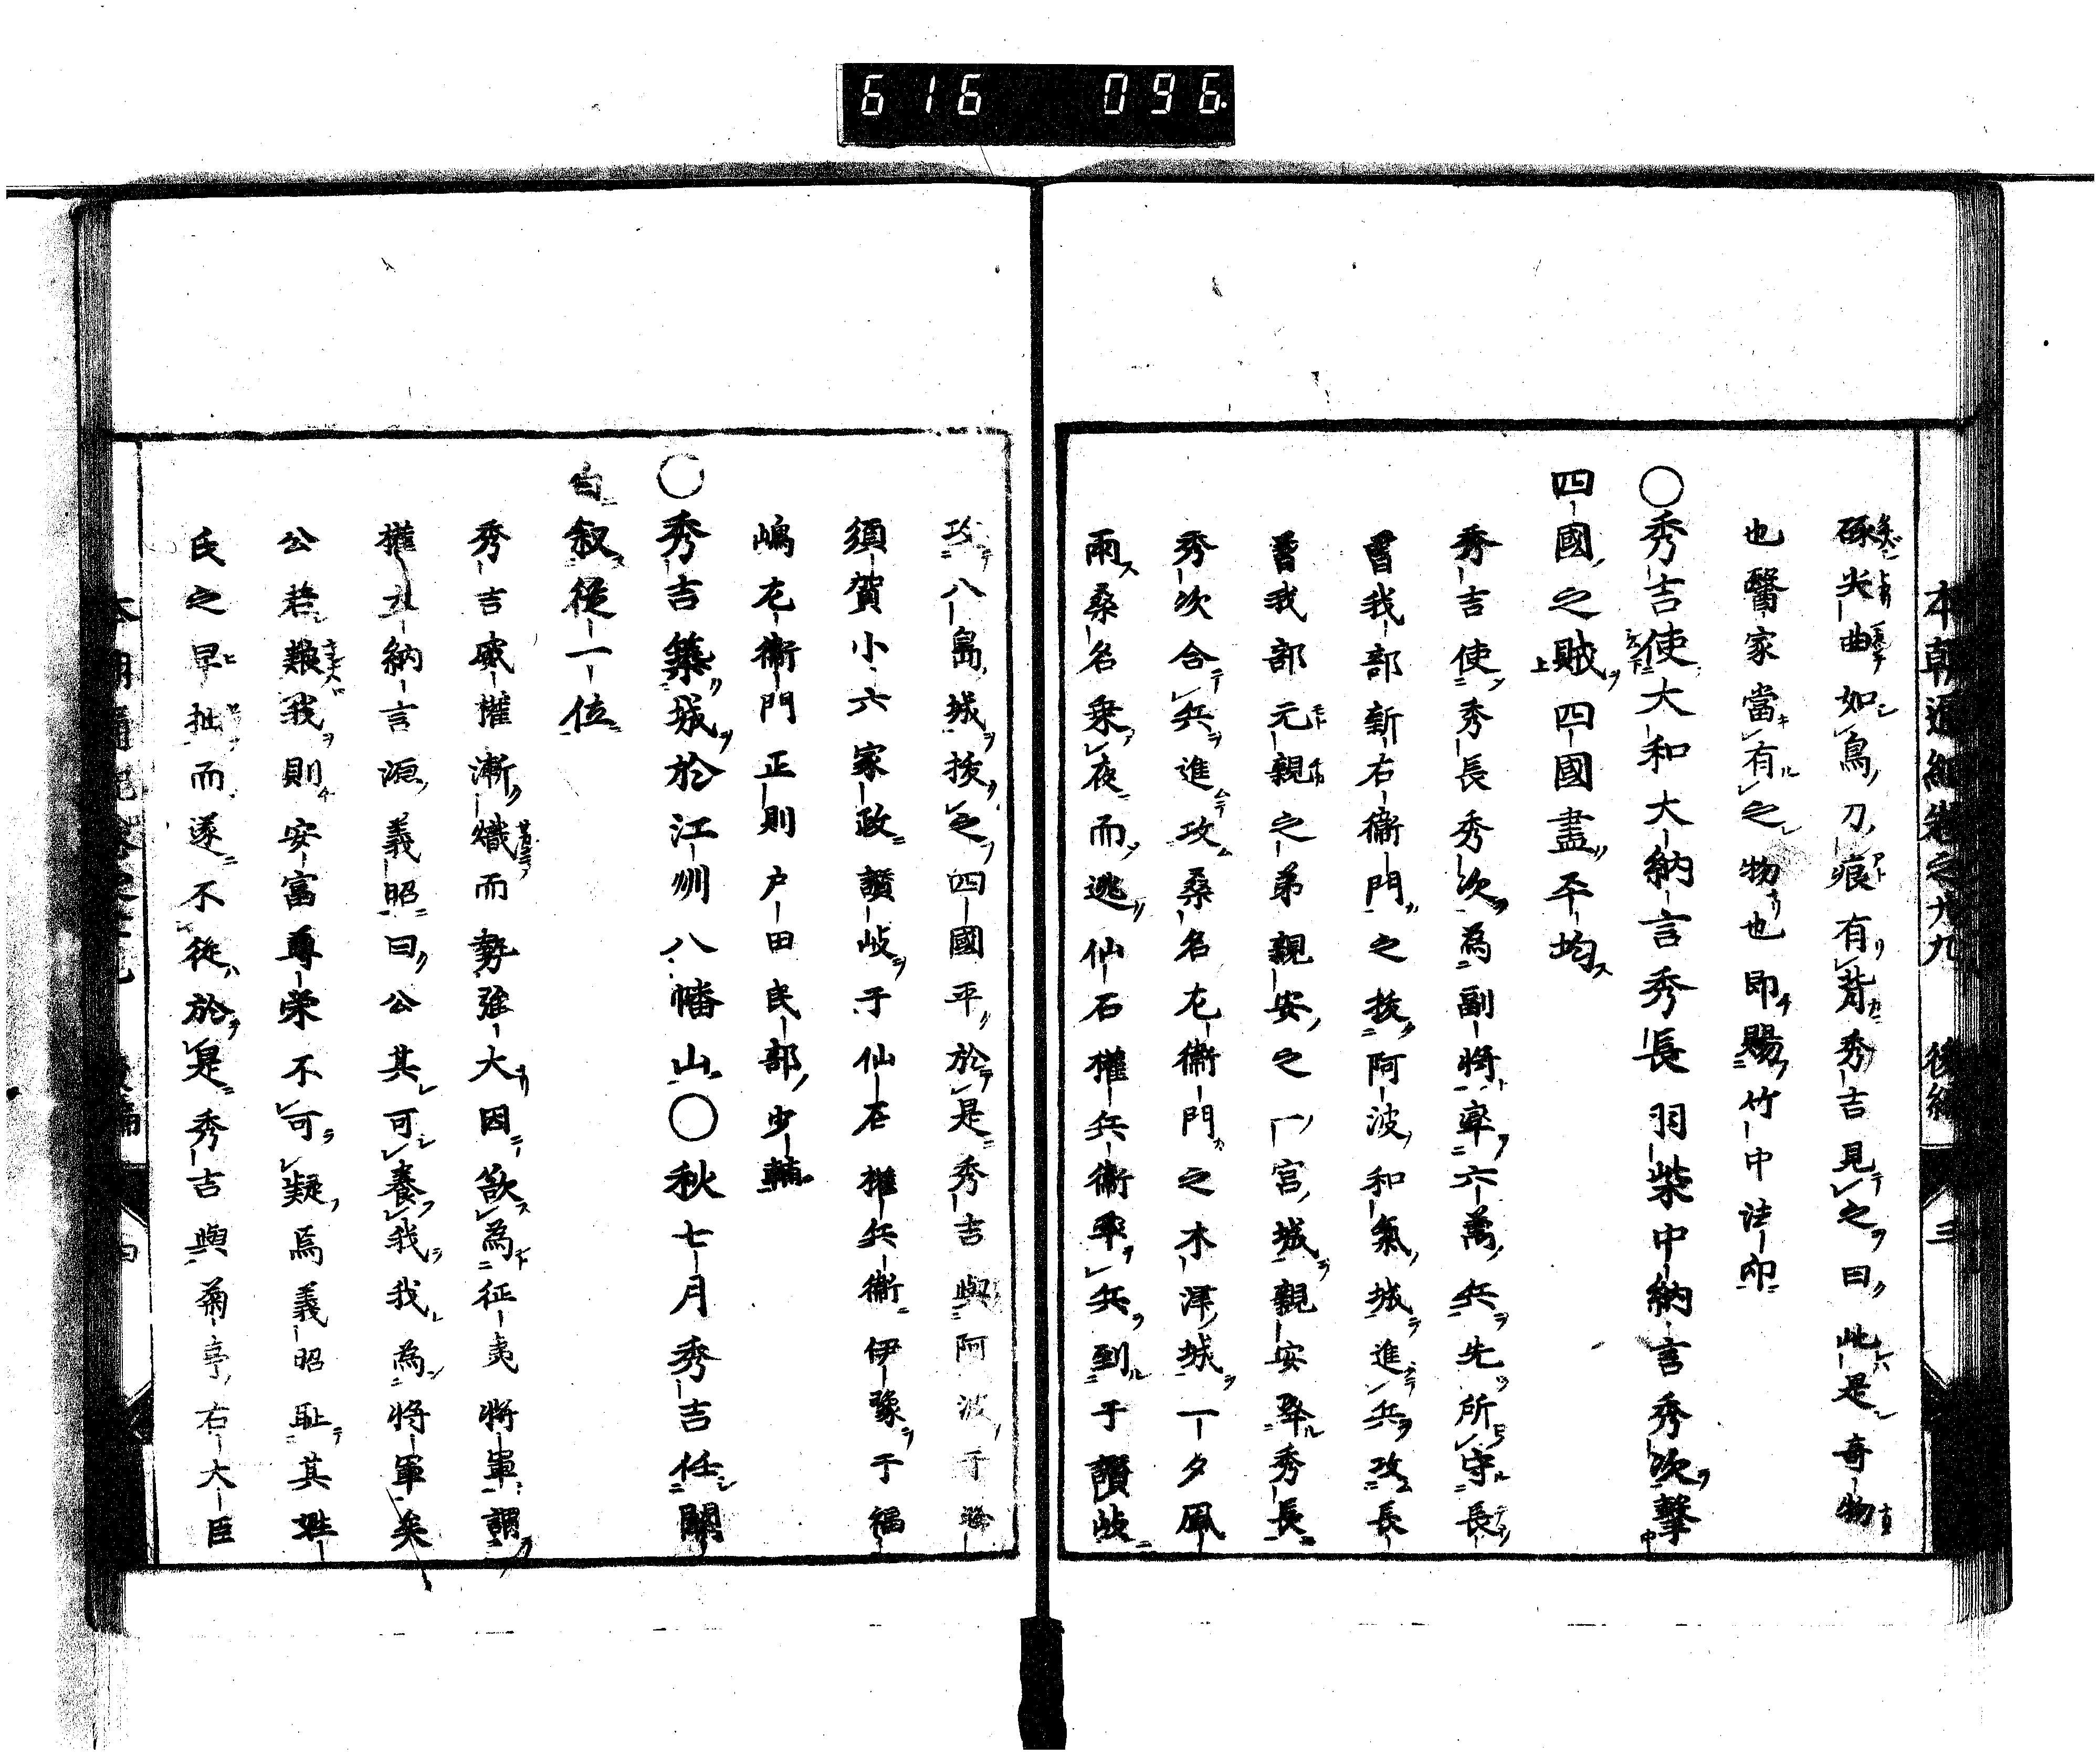 616 096
本朝通紀卷之十九 後編 三
砥尖曲如鳥刀痕有背秀吉見之曰此是奇物
也醫家當有之物也即賜竹中法印
○秀吉使大和大納言秀長羽柴中納言秀次撃
四國之賊四國盡平均
秀吉使秀長秀次為副將率六萬兵先所守長
曾我部新右衞門之拔阿波和氣城進兵攻長
曾我部元親之弟親安之一宮城親安降秀長
秀次合兵進攻桑名尢衞門之木津城一夕風
雨桑名乗夜而逃仙石權兵衞率兵到于讃岐
攻八島城拔之四國平於是秀吉與阿波于蜂
須賀小六家政讃岐于仙石権兵衞伊豫于福
嶋尢衞門正則戸田民部少輔
○秀吉築城於江州八幡山○秋七月秀吉任關
白叙從一位
秀吉威權漸熾而勢强大因欲為征夷將軍謂
權大納言源義昭曰公其可養我我為將軍矣
公若報我則安富尊榮不可疑焉義昭耻其
氏之早拙而遂不從於是秀吉與菊亭右大臣